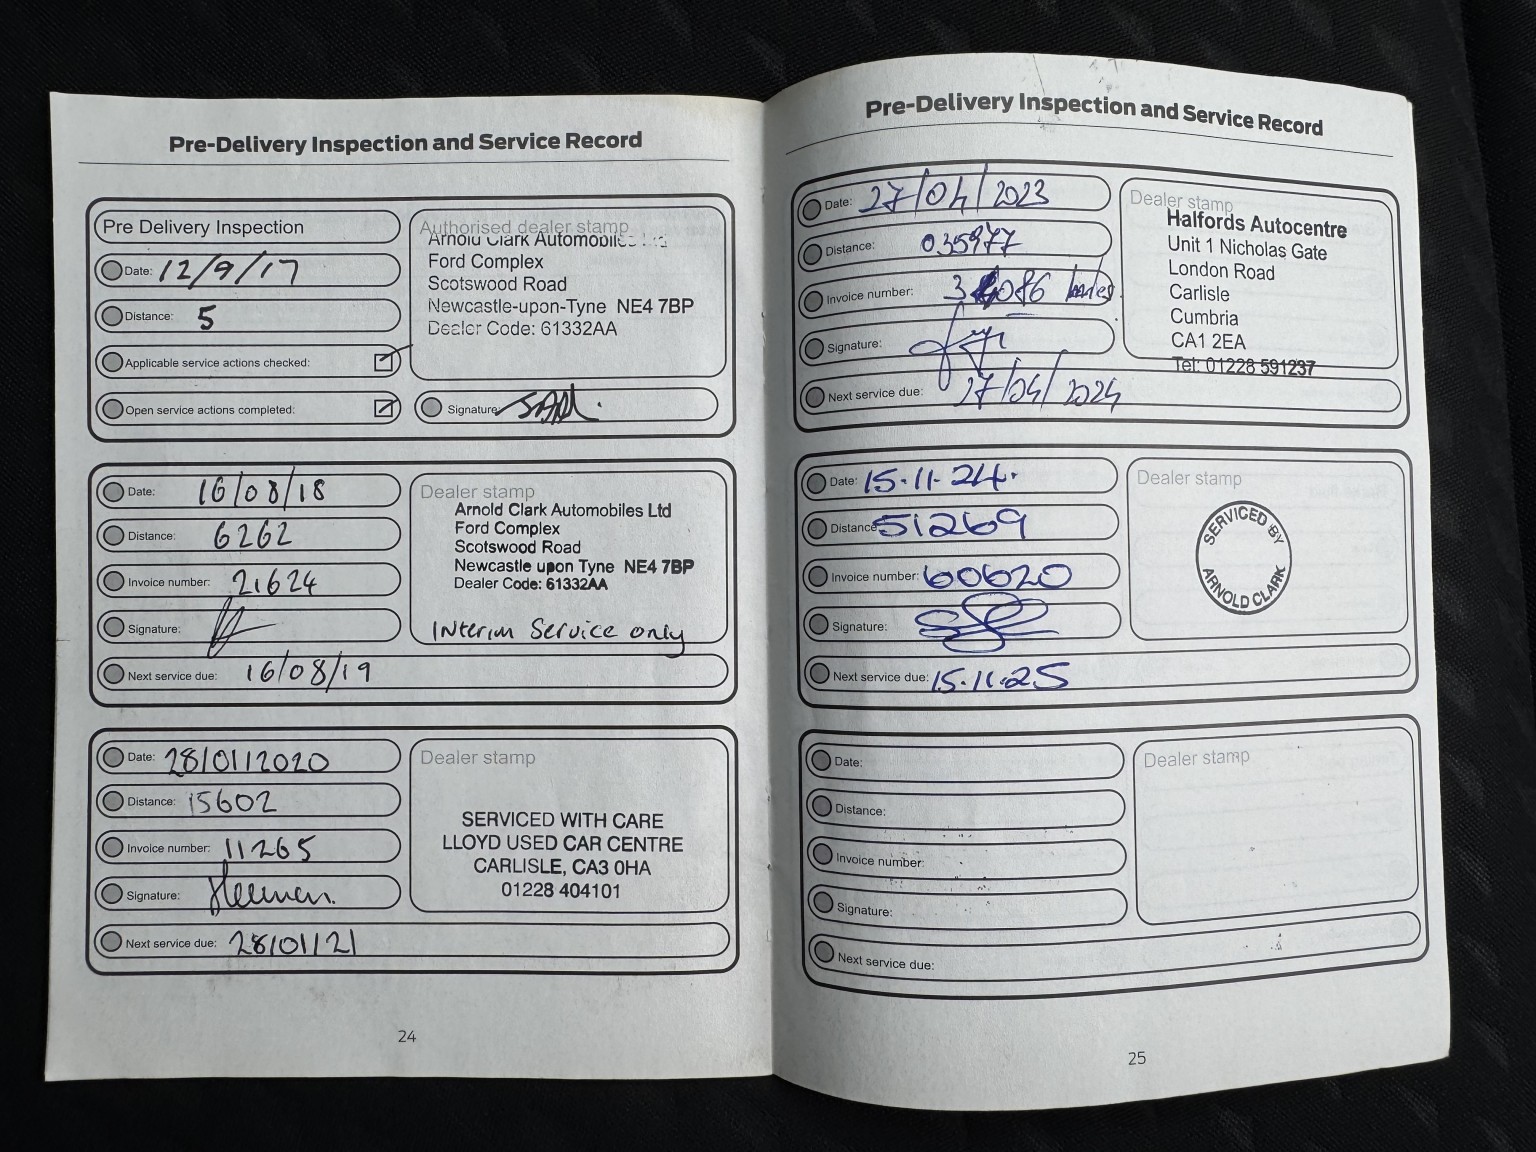 Pre-Delivery Inspection and Service Record
Pre Delivery Inspection
Date: 12/9/17
Distance: 5
Applicable service actions checked:
Open service actions completed:
Authorised dealer stamp
Arnold Clark Automobiles Ltd
Ford Complex
Scotswood Road
Newcastle-upon-Tyne NE4 7BP
Dealer Code: 61332AA
Signature:
Date: 16/08/18
Distance: 6262
Invoice number: 21624
Signature:
Next service due: 16/08/19
Dealer stamp
Arnold Clark Automobiles Ltd
Ford Complex
Scotswood Road
Newcastle upon Tyne NE4 7BP
Dealer Code: 61332AA
Interim Service only
Date: 28/01/2020
Distance: 15602
Invoice number: 11265
Signature:
Next service due: 28/01/21
Dealer stamp
SERVICED WITH CARE
LLOYD USED CAR CENTRE
CARLISLE, CA3 0HA
01228 404101
24
Pre-Delivery Inspection and Service Record
Date: 27/04/2023
Distance: 035977
Invoice number:
Signature:
Next service due: 27/04/2024
Dealer stamp
Halfords Autocentre
Unit 1 Nicholas Gate
London Road
Carlisle
Cumbria
CA1 2EA
Tel: 01228 591237
Date: 15.11.24.
Distance: 51269
Invoice number: 60620
Signature:
Next service due: 15.11.25
Dealer stamp
SERVICED BY
ARNOLD CLARK
Date:
Distance:
Invoice number:
Signature:
Next service due:
Dealer stamp
25